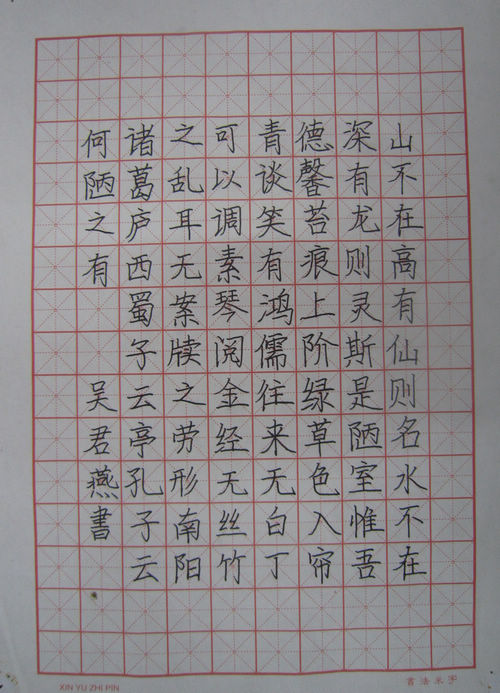 山不在高有仙则名水不在
深有龙则灵斯是陋室惟吾
德馨苔痕上阶绿草色入帘
青谈笑有鸿儒往来无白丁
可以调素琴阅金经无丝竹
之乱耳无案牍之劳形南阳
诸葛庐西蜀子云亭孔子云
何陋之有 吴君燕書
XIN YU ZHI PIN
書法米字